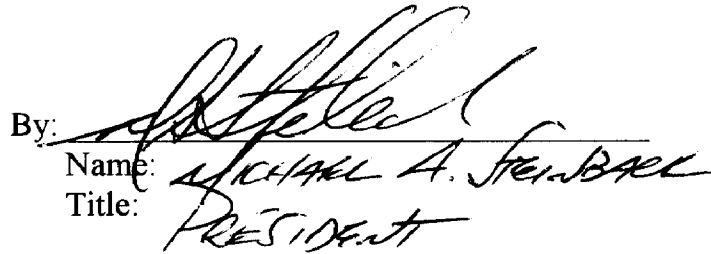 By:
Name: MICHAEL A. STEINBACK
Title: PRESIDENT